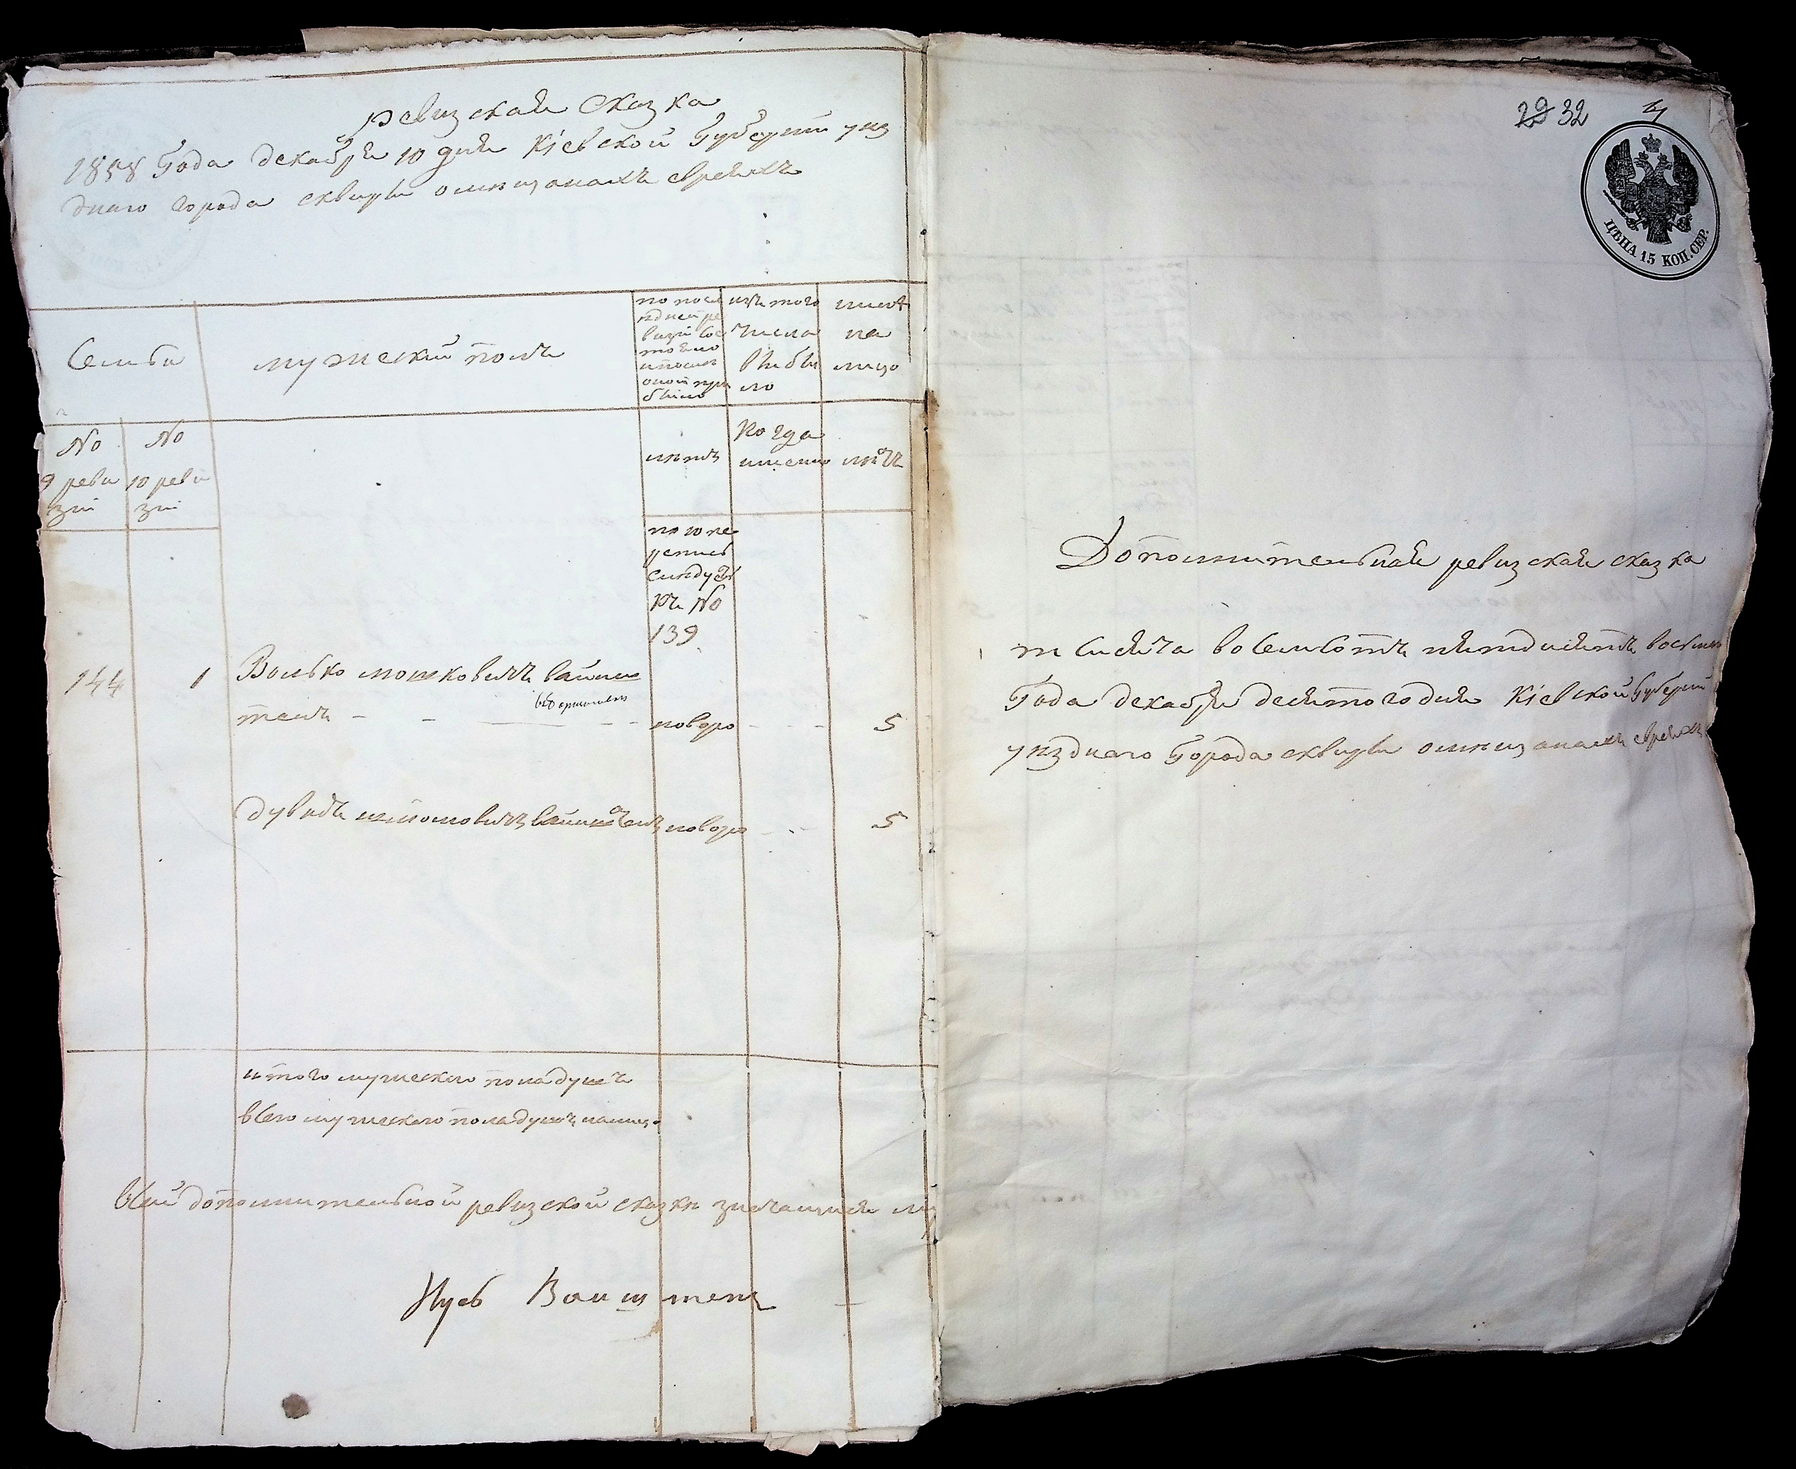 ревизская сказка
1858 Года декабря 10 дня Кіевской Губерніи уез
днаго города сквиры о мещанахъ евреяхъ
Семьи
мужеский полъ
по посл
едней ре
визіи сос
тояло
и после
оной при
было
изъ того
числа
выбы
ло
ныне
на
лицо
No
9 реви
зіи
No
10 реви
зіи
летъ
Когда
именно
летъ
по 10 пе
реписи
следуетъ
къ No
139
144 1 Волько мошковичъ вайнш
тенъ новоро 5
дувидъ вайнштенъ новоро 5
итого мужеского пола душъ
всего мужеского пола душъ
в сей дополнительной ревизской сказки значащися
Нусь Ваинштенъ
29 32 4
ЦѢНА 15 КОП. СЕР.
Дополнительная ревизская сказка
тысяча восемьсотъ пятдисятъ восьмаго
Года декабря десятого дня Кіевской Губерніи
уезднаго Города сквиры о мещанахъ евреяхъ